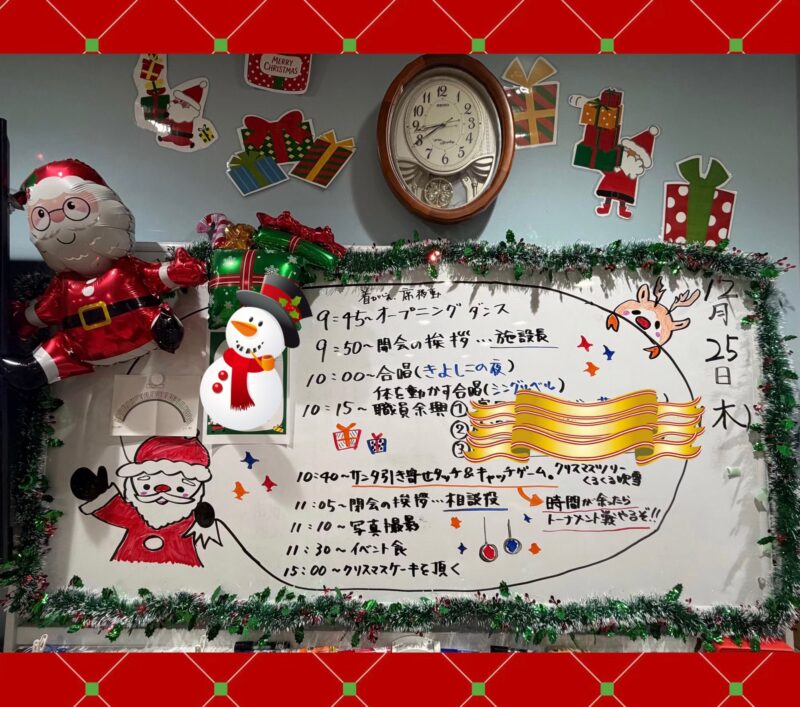 MERRY CHRISTMAS
12 11 10 9 8 7 6 5 4 3 2 1
SEIKO
12月25日木
9:45~オープニングダンス
9:50~開会の挨拶…施設長
10:00~合唱(きよしこの夜)
体を動かす合唱(ジングルベル)
10:15~職員余興①
②
③
10:40~サンタ引き寄せタッチ&キャッチゲーム。クリスマスツリー
くるくる吹雪
11:05~閉会の挨拶…相談役
時間が余ったら
トーナメント戦やるぞ!!
11:10~写真撮影
11:30~イベント食
15:00~クリスマスケーキを頂く